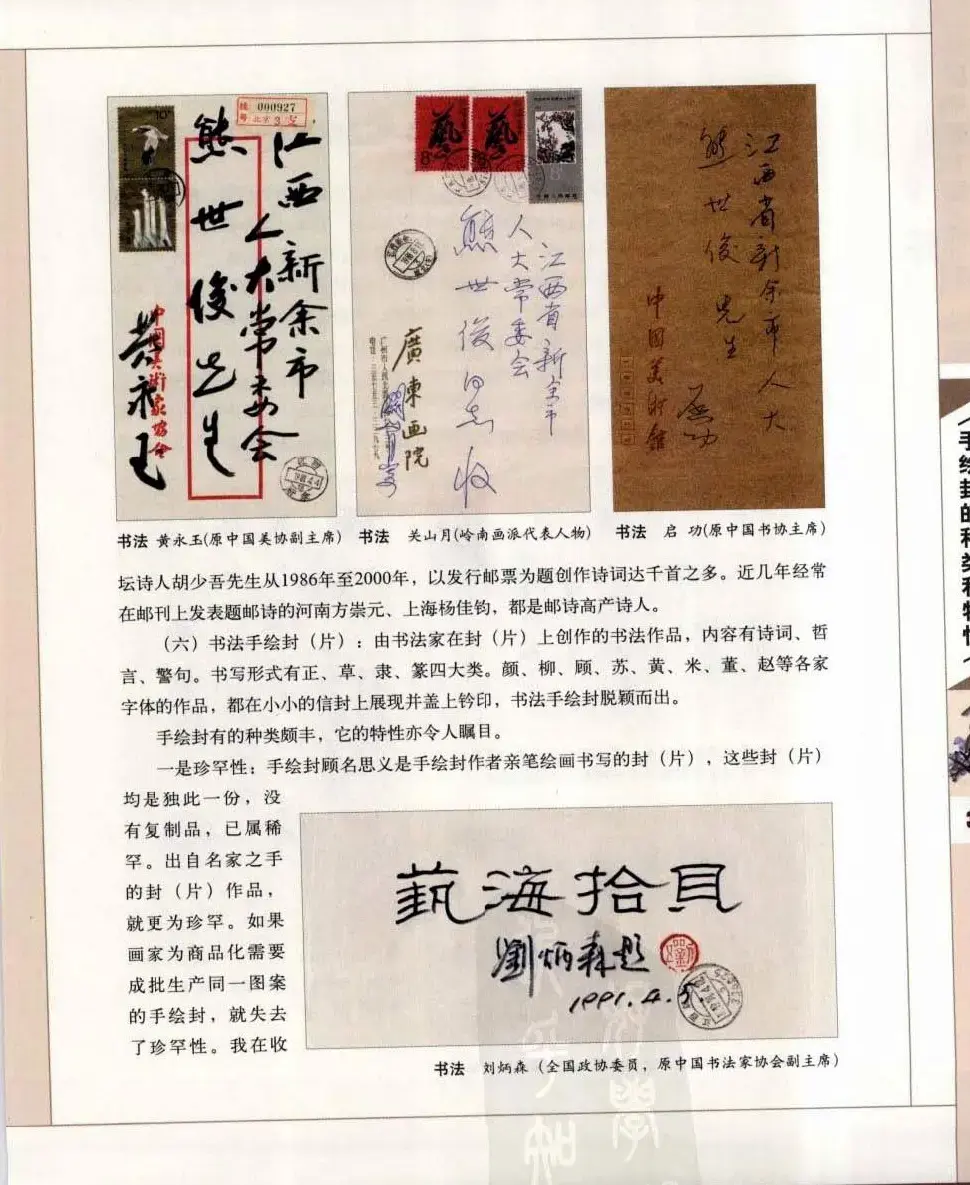 挂号 000927
北京 3 支
10分
江西新余市
人大常委会
熊世俊先生
中国美术家协会
黄永玉
藝
8分
藝
8分
江西省新余市
人大常委会
熊世俊同志收
廣東画院
关山月
江西省新余市人大
熊世俊先生
中国美術館
启功
书法 黄永玉(原中国美协副主席)
书法 关山月(岭南画派代表人物)
书法 启 功(原中国书协主席)
坛诗人胡少吾先生从1986年至2000年，以发行邮票为题创作诗词达千首之多。近几年经常
在邮刊上发表题邮诗的河南方崇元、上海杨佳钧，都是邮诗高产诗人。
（六）书法手绘封（片）：由书法家在封（片）上创作的书法作品，内容有诗词、哲
言、警句。书写形式有正、草、隶、篆四大类。颜、柳、顾、苏、黄、米、董、赵等各家
字体的作品，都在小小的信封上展现并盖上钤印，书法手绘封脱颖而出。
手绘封有的种类颇丰，它的特性亦令人瞩目。
一是珍罕性：手绘封顾名思义是手绘封作者亲笔绘画书写的封（片），这些封（片）
均是独此一份，没
有复制品，已属稀
罕。出自名家之手
的封（片）作品，
就更为珍罕。如果
画家为商品化需要
成批生产同一图案
的手绘封，就失去
了珍罕性。我在收
藝海拾貝
劉炳森題
1991.4.5
书法 刘炳森（全国政协委员，原中国书法家协会副主席）
手绘封的种类和特性